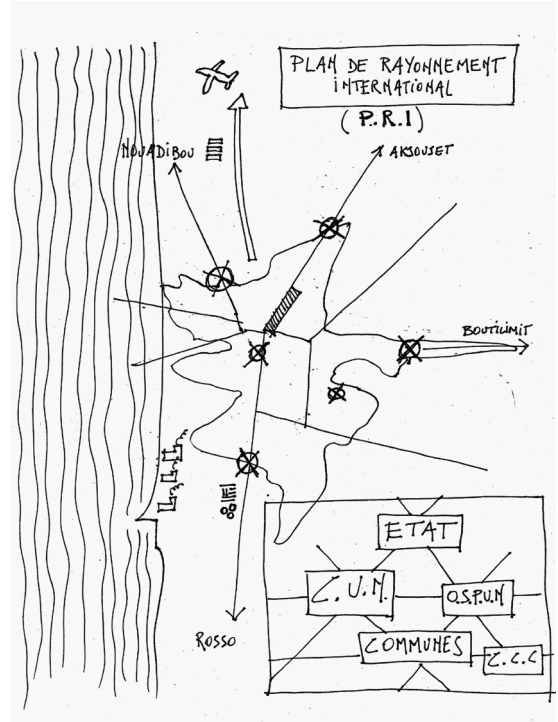 PLAN DE RAYONNEMENT
INTERNATIONAL
(P.R.I)
NOUADIBOU
AKJOUJET
BOUTILIMIT
ROSSO
ETAT
C.U.M.
O.S.P.U.M
COMMUNES
C.C.C